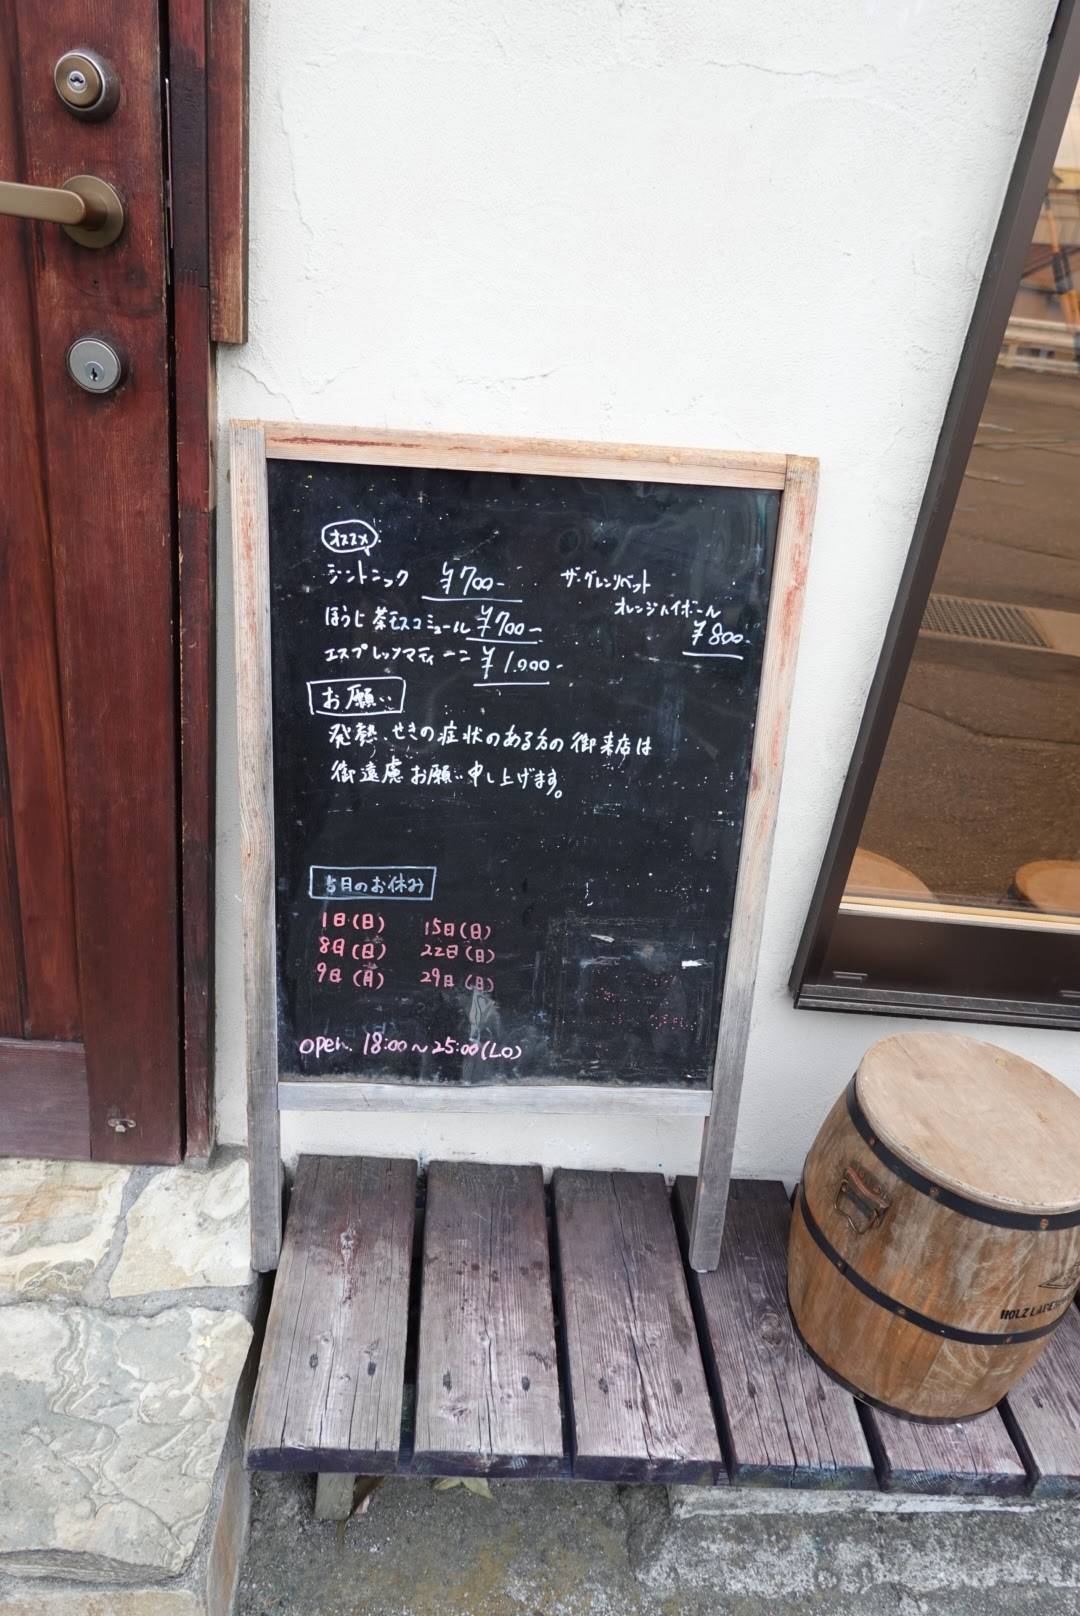 オススメ
ジントニック ¥700-
ほうじ茶モスコミュール ¥700-
エスプレッソマティーニ ¥1.000-
ザ・グレンリベット
オレンジハイボール
¥800-
お願い
発熱、せきの症状のある方の御来店は
御遠慮お願い申し上げます。
5月のお休み
1日(日) 15日(日)
8日(日) 22日(日)
9日(月) 29日(日)
open. 18:00〜25:00(L.O)